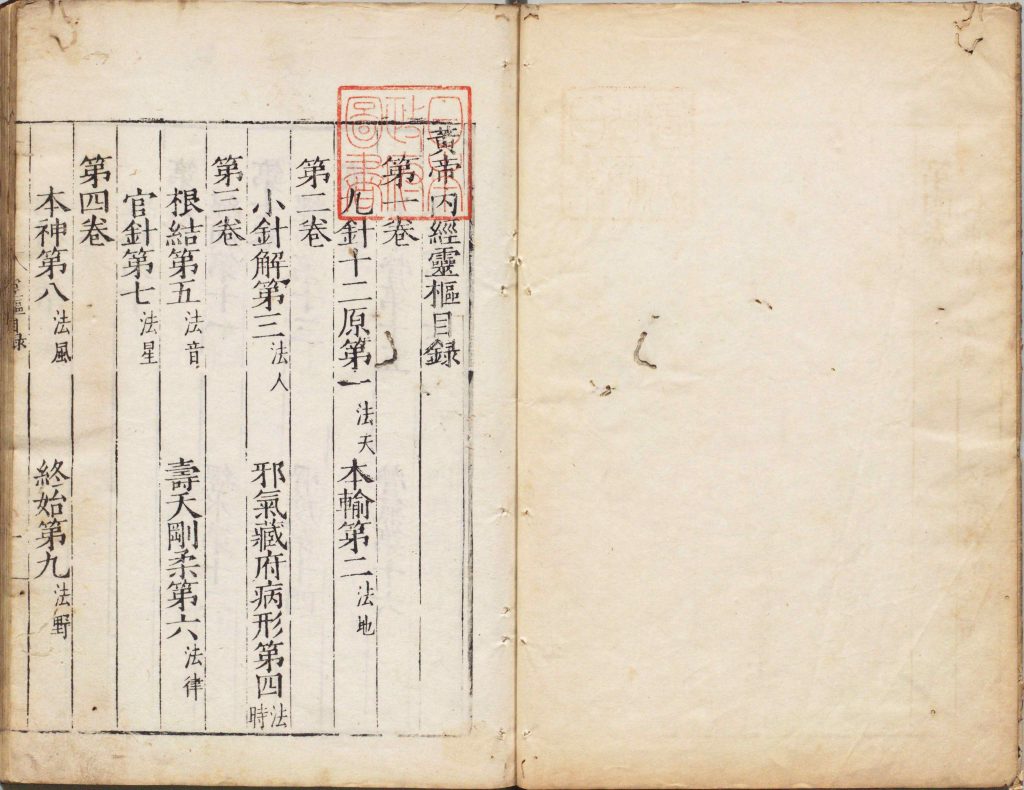 黃帝內經靈樞目錄
第一卷
九針十二原第一 法天 本輸第二 法地
第二卷
小針解第三 法人 邪氣藏府病形第四 法時
第三卷
根結第五 法音 壽夭剛柔第六 法律
官針第七 法星
第四卷
本神第八 法風 終始第九 法野
靈樞目錄
圖書